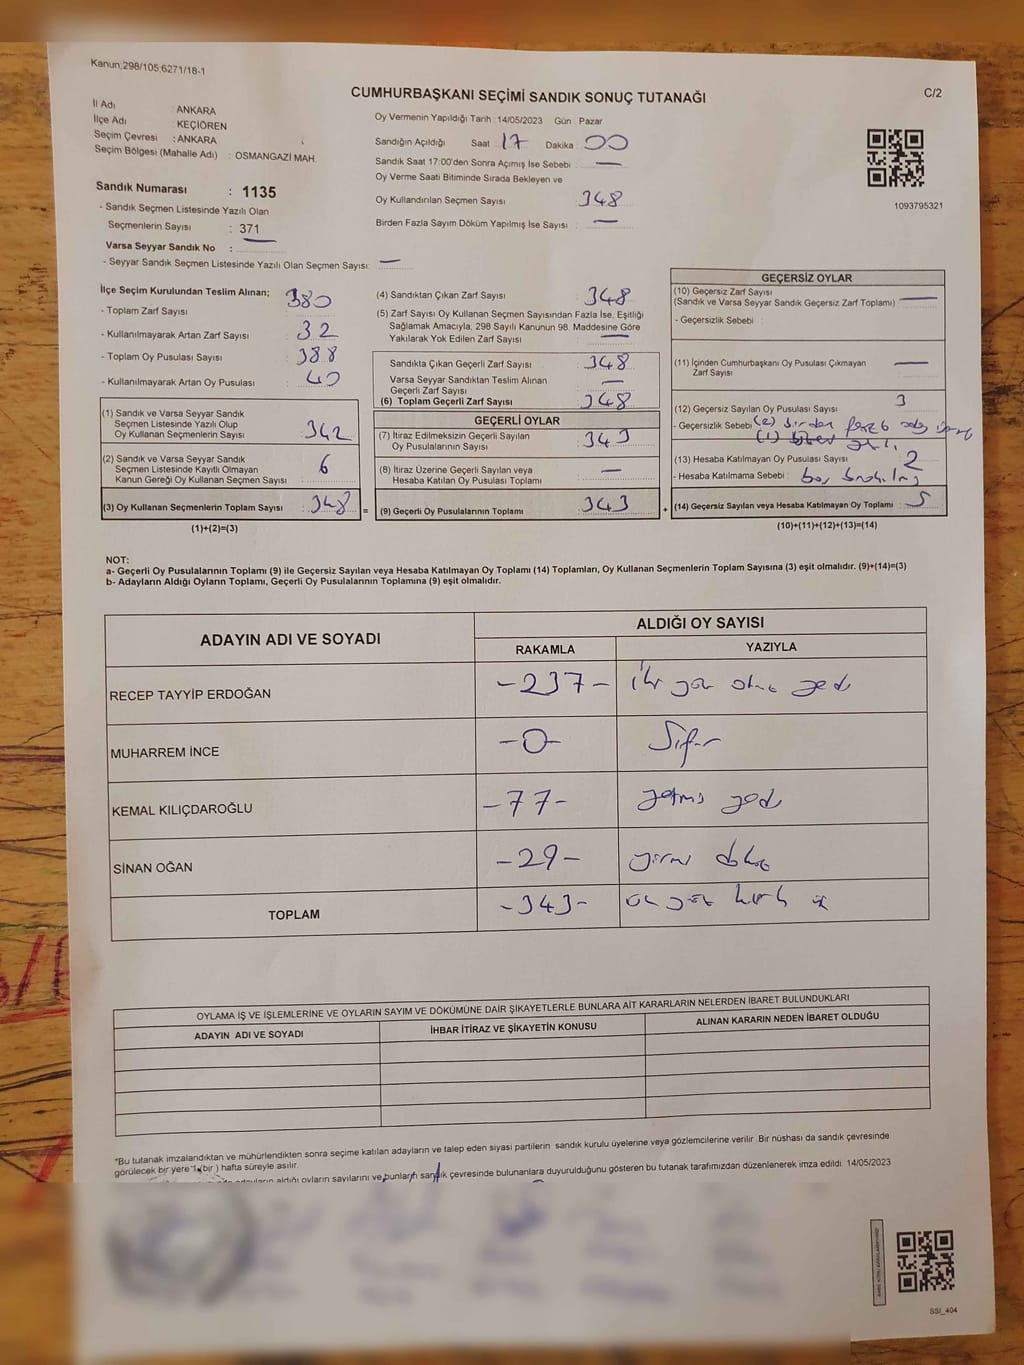 Kanun;298/105;6271/18-1
CUMHURBAŞKANI SEÇİMİ SANDIK SONUÇ TUTANAĞI
C/2
İl Adı : ANKARA
İlçe Adı : KEÇİÖREN
Seçim Çevresi : ANKARA
Seçim Bölgesi (Mahalle Adı) : OSMANGAZİ MAH.
Sandık Numarası : 1135
- Sandık Seçmen Listesinde Yazılı Olan
Seçmenlerin Sayısı : 371
Varsa Seyyar Sandık No : —
- Seyyar Sandık Seçmen Listesinde Yazılı Olan Seçmen Sayısı: —
Oy Vermenin Yapıldığı Tarih : 14/05/2023 Gün : Pazar
Sandığın Açıldığı Saat : 17 Dakika : 00
Sandık Saat 17:00'den Sonra Açımış İse Sebebi : —
Oy Verme Saati Bitiminde Sırada Bekleyen ve
Oy Kullandırılan Seçmen Sayısı : 348
Birden Fazla Sayım Döküm Yapılmış İse Sayısı : —
1093795321
İlçe Seçim Kurulundan Teslim Alınan;
- Toplam Zarf Sayısı : 380
- Kullanılmayarak Artan Zarf Sayısı : 32
- Toplam Oy Pusulası Sayısı : 388
- Kullanılmayarak Artan Oy Pusulası : 40
(1) Sandık ve Varsa Seyyar Sandık
Seçmen Listesinde Yazılı Olup
Oy Kullanan Seçmenlerin Sayısı : 342
(2) Sandık ve Varsa Seyyar Sandık
Seçmen Listesinde Kayıtlı Olmayan
Kanun Gereği Oy Kullanan Seçmen Sayısı : 6
(3) Oy Kullanan Seçmenlerin Toplam Sayısı : 348 =
(1)+(2)=(3)
(4) Sandıktan Çıkan Zarf Sayısı : 348
(5) Zarf Sayısı Oy Kullanan Seçmen Sayısından Fazla İse, Eşitliği
Sağlamak Amacıyla, 298 Sayılı Kanunun 98. Maddesine Göre
Yakılarak Yok Edilen Zarf Sayısı : —
Sandıkta Çıkan Geçerli Zarf Sayısı : 348
Varsa Seyyar Sandıktan Teslim Alınan
Geçerli Zarf Sayısı : —
(6) Toplam Geçerli Zarf Sayısı : 348
GEÇERLİ OYLAR
(7) İtiraz Edilmeksizin Geçerli Sayılan
Oy Pusulalarının Sayısı : 343
(8) İtiraz Üzerine Geçerli Sayılan veya
Hesaba Katılan Oy Pusulası Toplamı : —
(9) Geçerli Oy Pusulalarının Toplamı : 343 +
GEÇERSİZ OYLAR
(10) Geçersiz Zarf Sayısı
(Sandık ve Varsa Seyyar Sandık Geçersiz Zarf Toplamı) : —
- Geçersizlik Sebebi :
(11) İçinden Cumhurbaşkanı Oy Pusulası Çıkmayan
Zarf Sayısı : —
(12) Geçersiz Sayılan Oy Pusulası Sayısı : 3
- Geçersizlik Sebebi : (2) birden
(1)
(13) Hesaba Katılmayan Oy Pusulası Sayısı : 2
- Hesaba Katılmama Sebebi : boş
(14) Geçersiz Sayılan veya Hesaba Katılmayan Oy Toplamı : 5
(10)+(11)+(12)+(13)=(14)
NOT:
a- Geçerli Oy Pusulalarının Toplamı (9) ile Geçersiz Sayılan veya Hesaba Katılmayan Oy Toplamı (14) Toplamları, Oy Kullanan Seçmenlerin Toplam Sayısına (3) eşit olmalıdır. (9)+(14)=(3)
b- Adayların Aldığı Oyların Toplamı, Geçerli Oy Pusulalarının Toplamına (9) eşit olmalıdır.
ADAYIN ADI VE SOYADI
ALDIĞI OY SAYISI
RAKAMLA YAZIYLA
RECEP TAYYİP ERDOĞAN -237- iki yüz otuz yedi
MUHARREM İNCE -0- Sıfır
KEMAL KILIÇDAROĞLU -77- yetmiş yedi
SİNAN OĞAN -29- yirmi dokuz
TOPLAM -343- üç yüz kırk üç
OYLAMA İŞ VE İŞLEMLERİNE VE OYLARIN SAYIM VE DÖKÜMÜNE DAİR ŞİKAYETLERLE BUNLARA AİT KARARLARIN NELERDEN İBARET BULUNDUKLARI
ADAYIN ADI VE SOYADI İHBAR İTİRAZ VE ŞİKAYETİN KONUSU ALINAN KARARIN NEDEN İBARET OLDUĞU
*Bu tutanak imzalandıktan ve mühürlendikten sonra seçime katılan adayların ve talep eden siyasi partilerin sandık kurulu üyelerine veya gözlemcilerine verilir. Bir nüshası da sandık çevresinde
görülecek bir yere 1 (bir) hafta süreyle asılır.
aldığı oyların sayılarını ve bunların sandık çevresinde bulunanlara duyurulduğunu gösteren bu tutanak tarafımızdan düzenlenerek imza edildi. 14/05/2023
SSİ_404